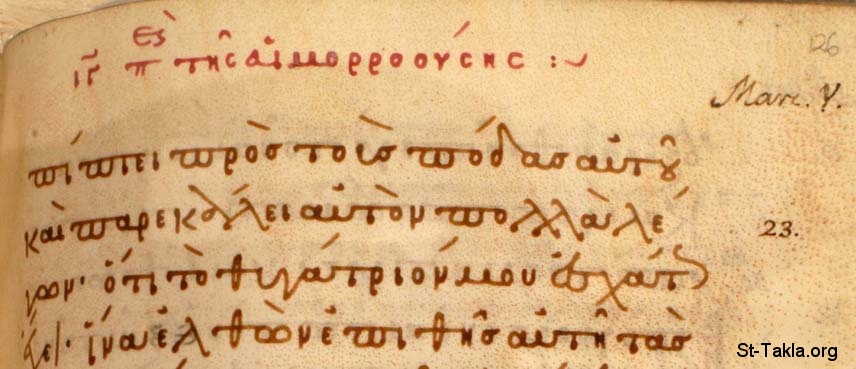 126
ιγ π τῆς αἱμορροούσης :~
Marc. V.
πίπτει πρὸσ τοὺσ πόδασ αὐτοῦ
καὶ παρεκάλει αὐτὸν πολλὰ λέ
23.
γων. ὅτι τὸ θυγάτριόν μου ἐσχάτ
ἔχει. ἵνα ἐλθὼν ἐπιθῆσ αὐτῆ τὰσ
St-Takla.org